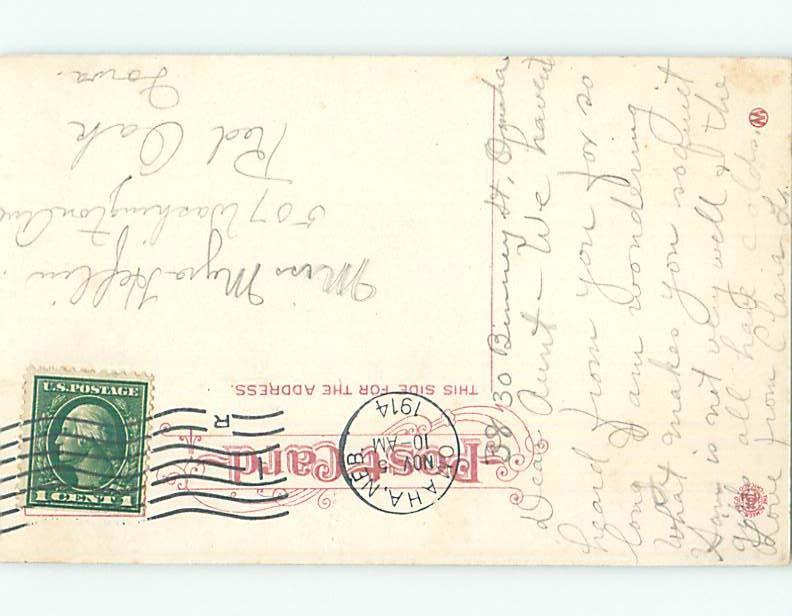 Post Card
THIS SIDE FOR THE ADDRESS.
OMAHA, NEB.
NOV 5
10 AM
1914
R
U.S. POSTAGE
1 CENT 1
Miss Myra Heflin
507 Washington Ave
Red Oak
Iowa.
3830 Binney St, Omaha
Dear Aunt - We havent
heard from you for so
long I am wondering
what makes you so quiet
is not very well & the
all have colds.
Love from Clais L.